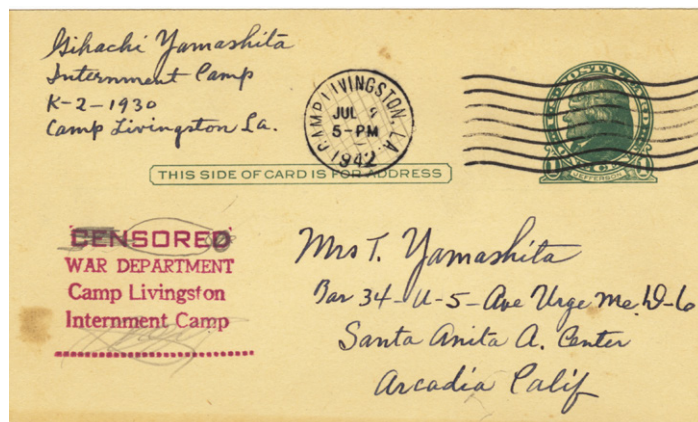 Gihachi Yamashita
Internment Camp
K-2-1930
Camp Livingston La.
CAMP LIVINGSTON, LA.
JUL
5-PM
1942
THIS SIDE OF CARD IS FOR ADDRESS
JEFFERSON
CENSORED
WAR DEPARTMENT
Camp Livingston
Internment Camp
Mrs T. Yamashita
Bar 34-U-5-Ave Urge Me. D-6
Santa Anita A. Center
Arcadia Calif